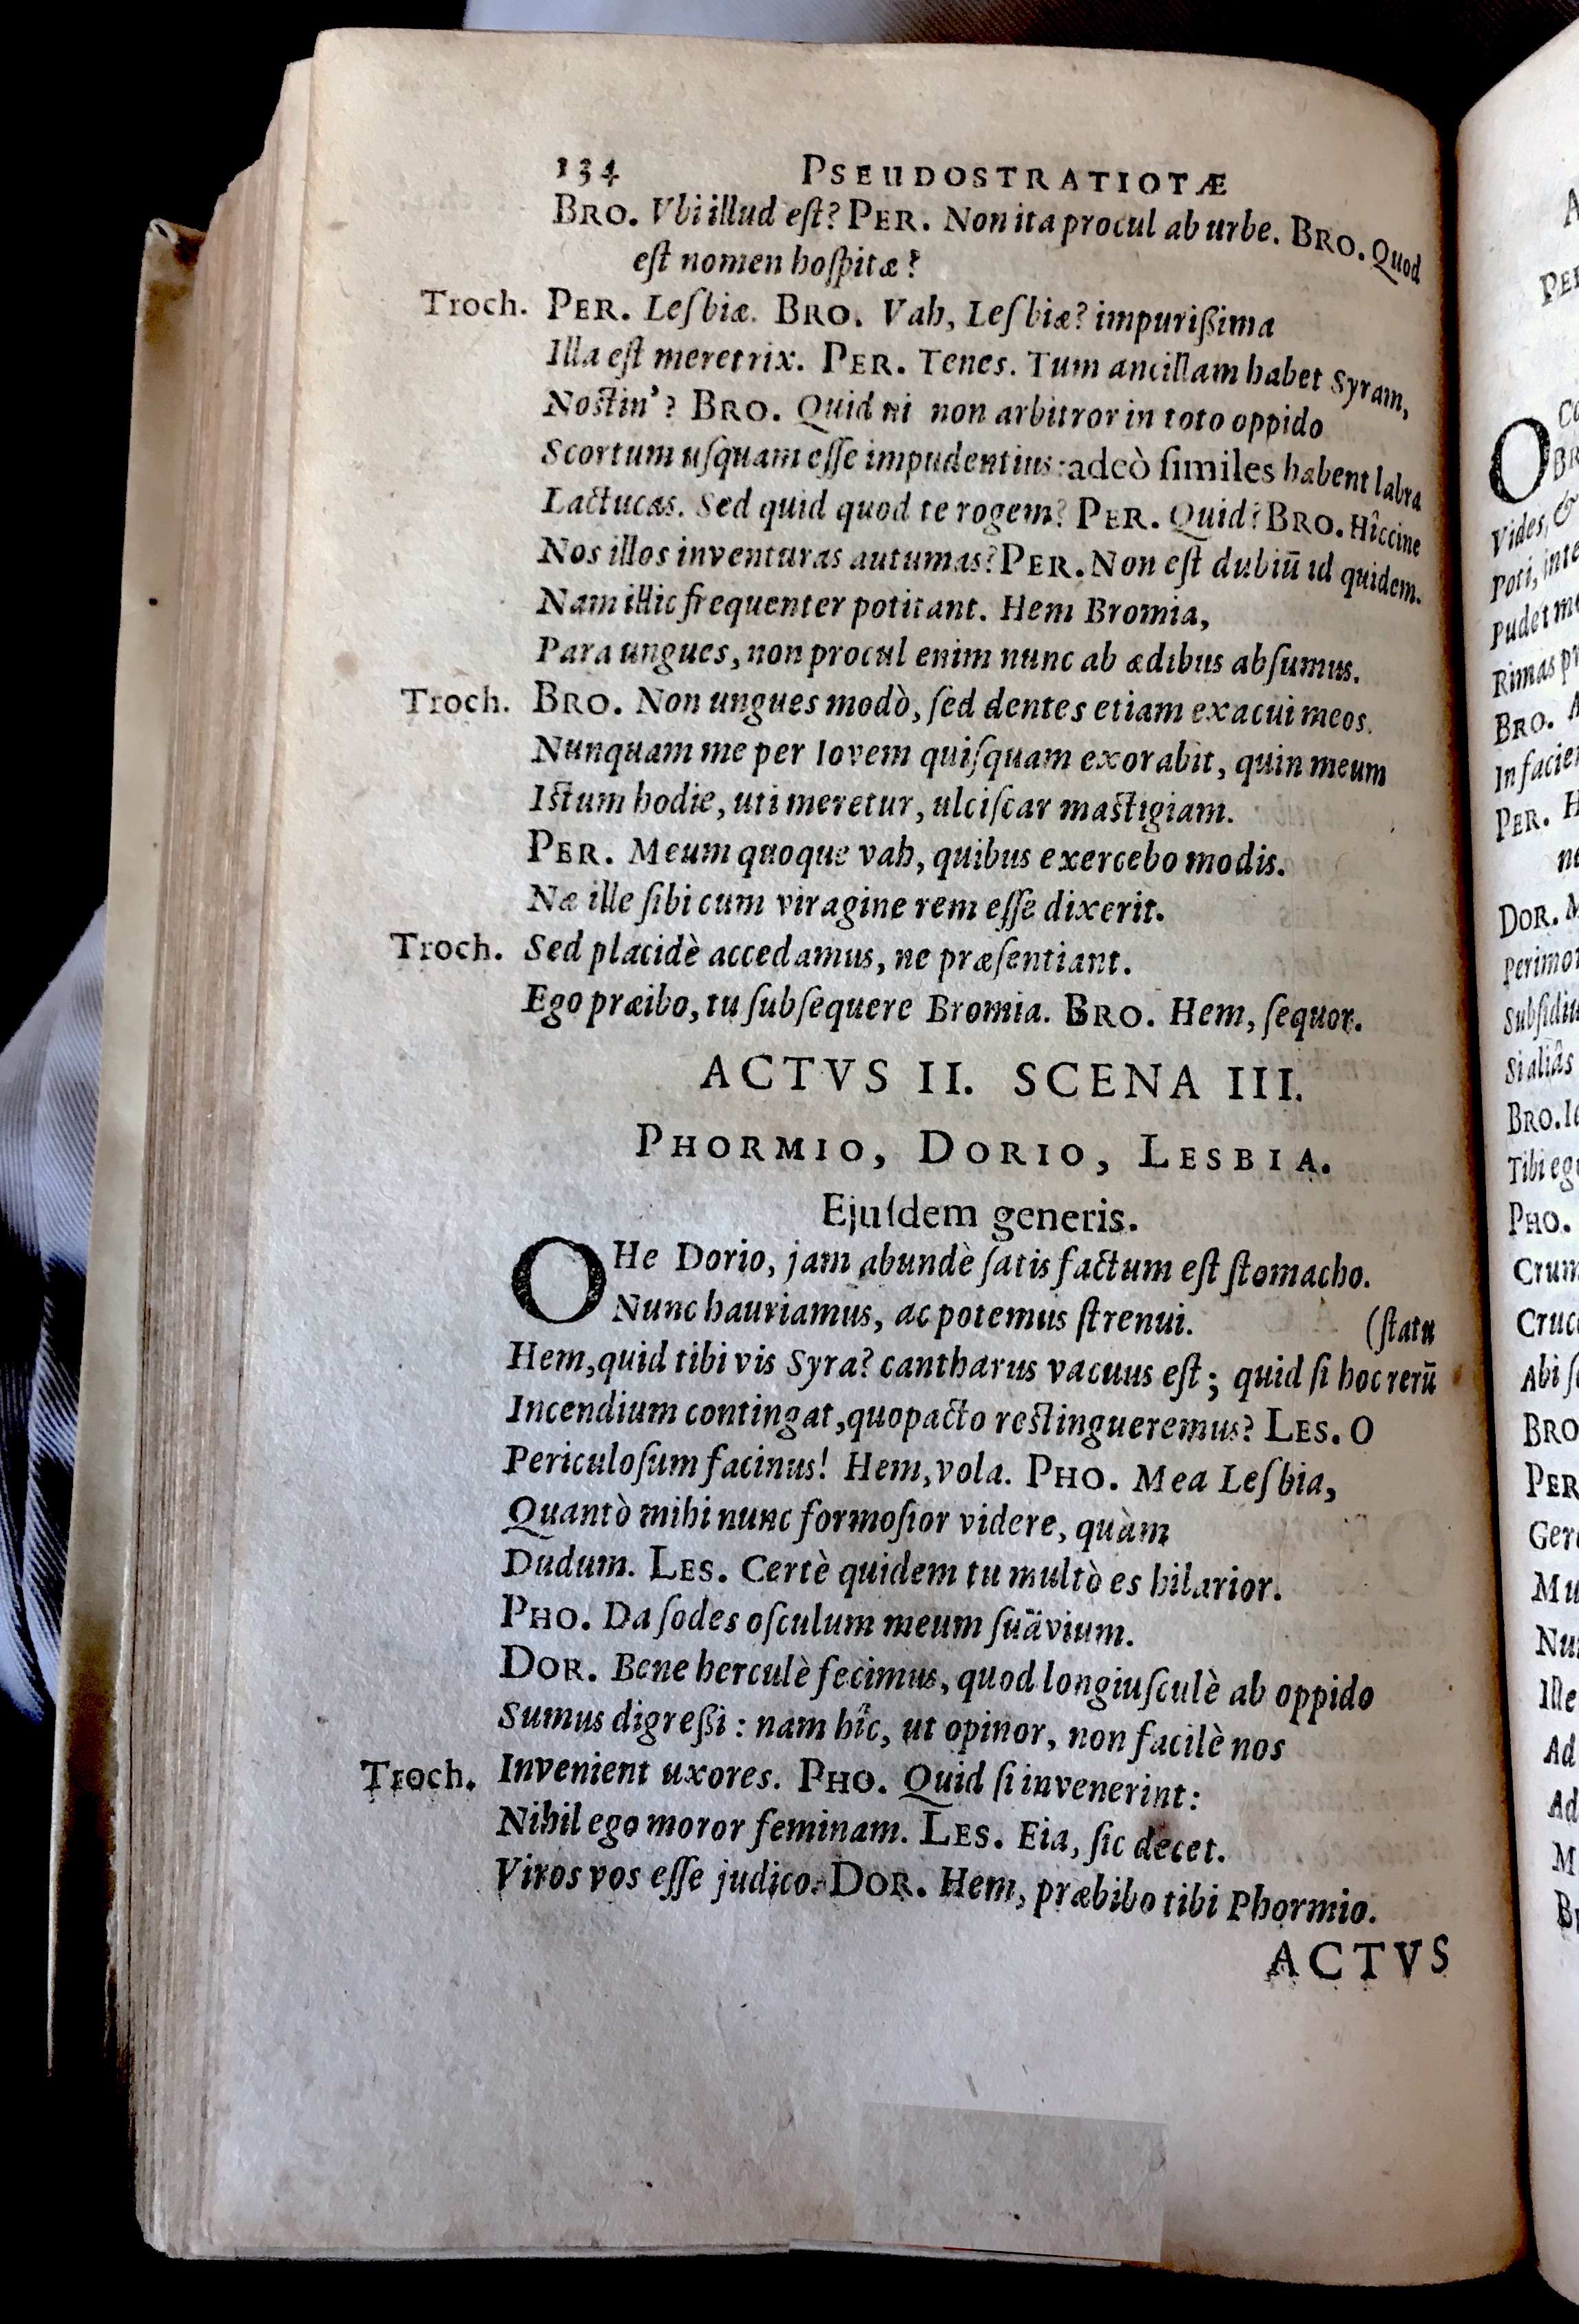 134 PSEUDOSTRATIOTÆ
BRO. Vbi illud eſt? PER. Non ita procul ab urbe. BRO. Quod
eſt nomen hoſpitæ?
Troch. PER. Leſbiæ. BRO. Vah, Leſbiæ? impurißima
Illa eſt meretrix. PER. Tenes. Tum ancillam habet Syram,
Noſtin'? BRO. Quid ni non arbitror in toto oppido
Scortum uſquam eſſe impudentius: adeò ſimiles habent labra
Lactucas. Sed quid quod te rogem? PER. Quid? BRO. Hîccine
Nos illos inventuras autumas? PER. Non eſt dubiū id quidem.
Nam illic frequenter potitant. Hem Bromia,
Para ungues, non procul enim nunc ab ædibus abſumus.
Troch. BRO. Non ungues modò, ſed dentes etiam exacui meos.
Nunquam me per Iovem quiſquam exorabit, quin meum
Iſtum hodie, uti meretur, ulciſcar maſtigiam.
PER. Meum quoque vah, quibus exercebo modis.
Næ ille ſibi cum viragine rem eſſe dixerit.
Troch. Sed placidè accedamus, ne præſentiant.
Ego præibo, tu ſubſequere Bromia. BRO. Hem, ſequor.
ACTVS II. SCENA III.
PHORMIO, DORIO, LESBIA.
Ejuſdem generis.
OHe Dorio, jam abundè ſatis factum eſt ſtomacho.
Nunc hauriamus, ac potemus ſtrenui. (ſtatu
Hem, quid tibi vis Syra? cantharus vacuus eſt; quid ſi hoc rerū
Incendium contingat, quopacto reſtingueremus? LES. O
Periculoſum facinus! Hem, vola. PHO. Mea Leſbia,
Quantò mihi nunc formoſior videre, quàm
Dudum. LES. Certè quidem tu multò es hilarior.
PHO. Da ſodes oſculum meum ſuävium.
DOR. Bene herculè fecimus, quod longiuſculè ab oppido
Sumus digreßi: nam hîc, ut opinor, non facilè nos
Troch. Invenient uxores. PHO. Quid ſi invenerint:
Nihil ego moror feminam. LES. Eia, ſic decet.
Viros vos eſſe judico. DOR. Hem, præbibo tibi Phormio.
ACTVS